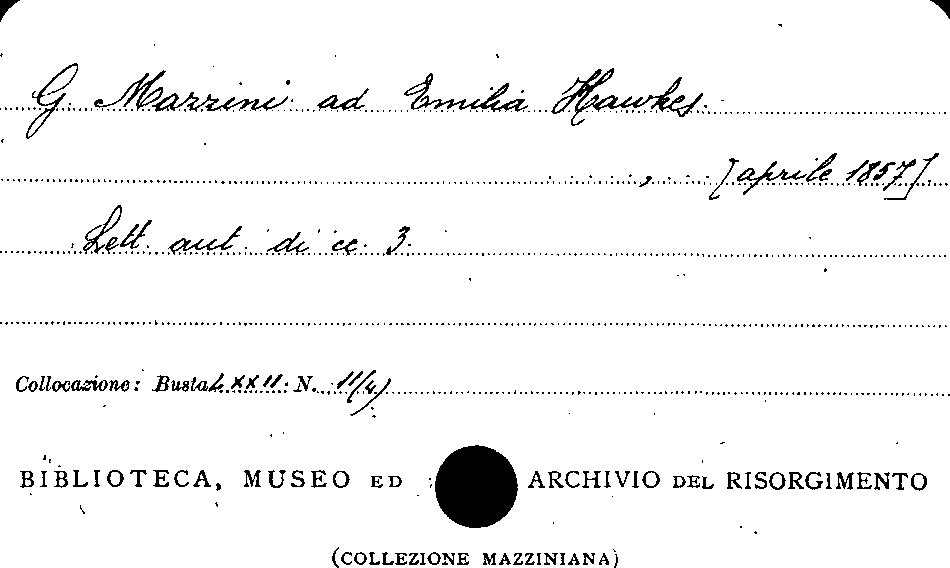 G. Mazzini ad Emilia Hawkes.
......, .... [aprile 1857].
Lett. aut. di cc. 3.
Collocazione: Busta LXXII. N. 11/4)
BIBLIOTECA, MUSEO ED ARCHIVIO DEL RISORGIMENTO
(COLLEZIONE MAZZINIANA)